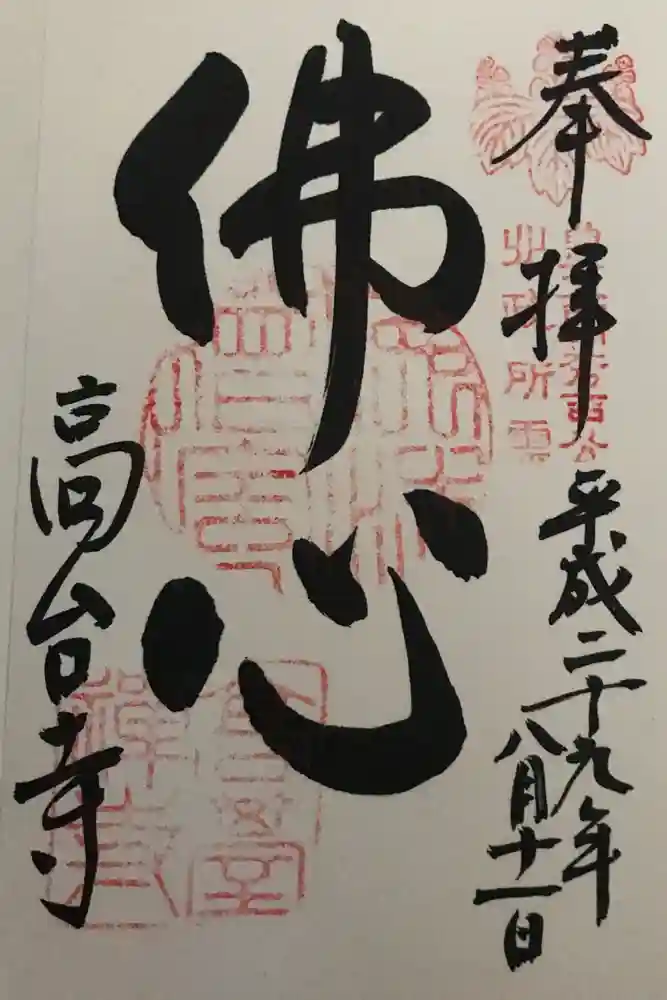 奉拝
平成二十九年
八月十一日
佛心
高台寺